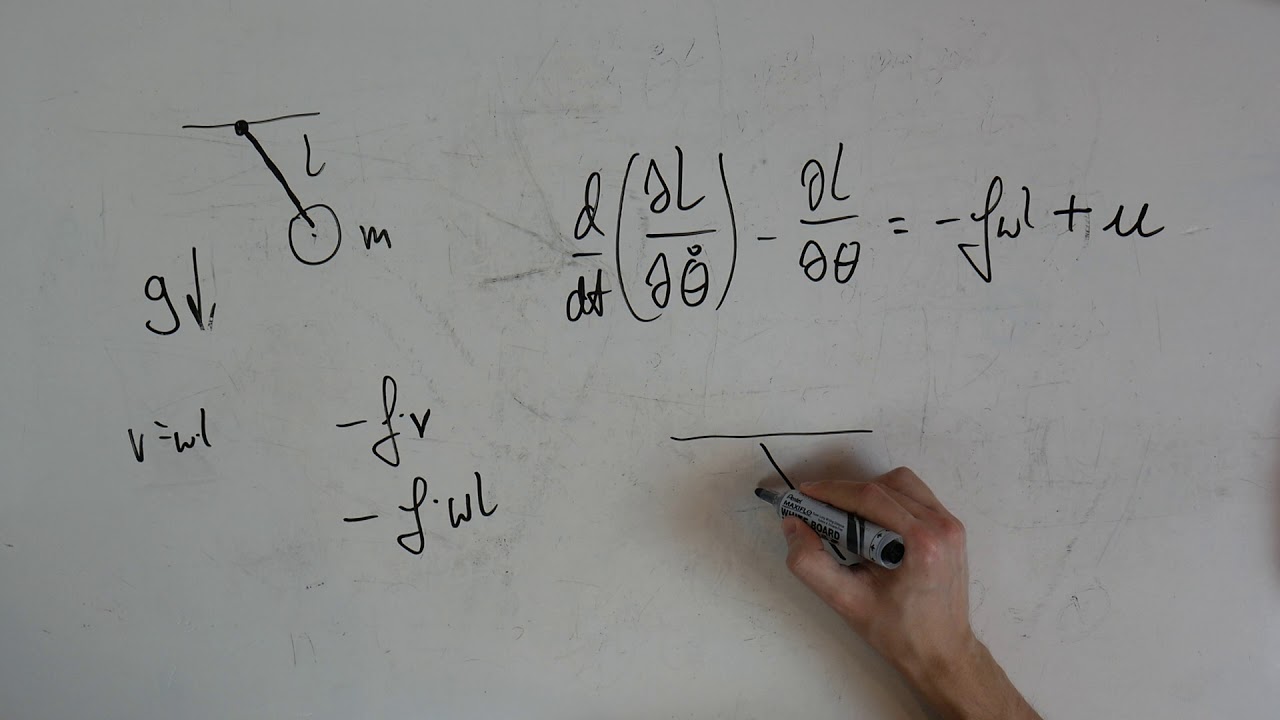 l
m
g↓
d/dt (∂L/∂θ̊) - ∂L/∂θ = -fωl + u
v=ω.l
- f.v
- f.ωl
Pentel
MAXIFLO
WHITE BOARD